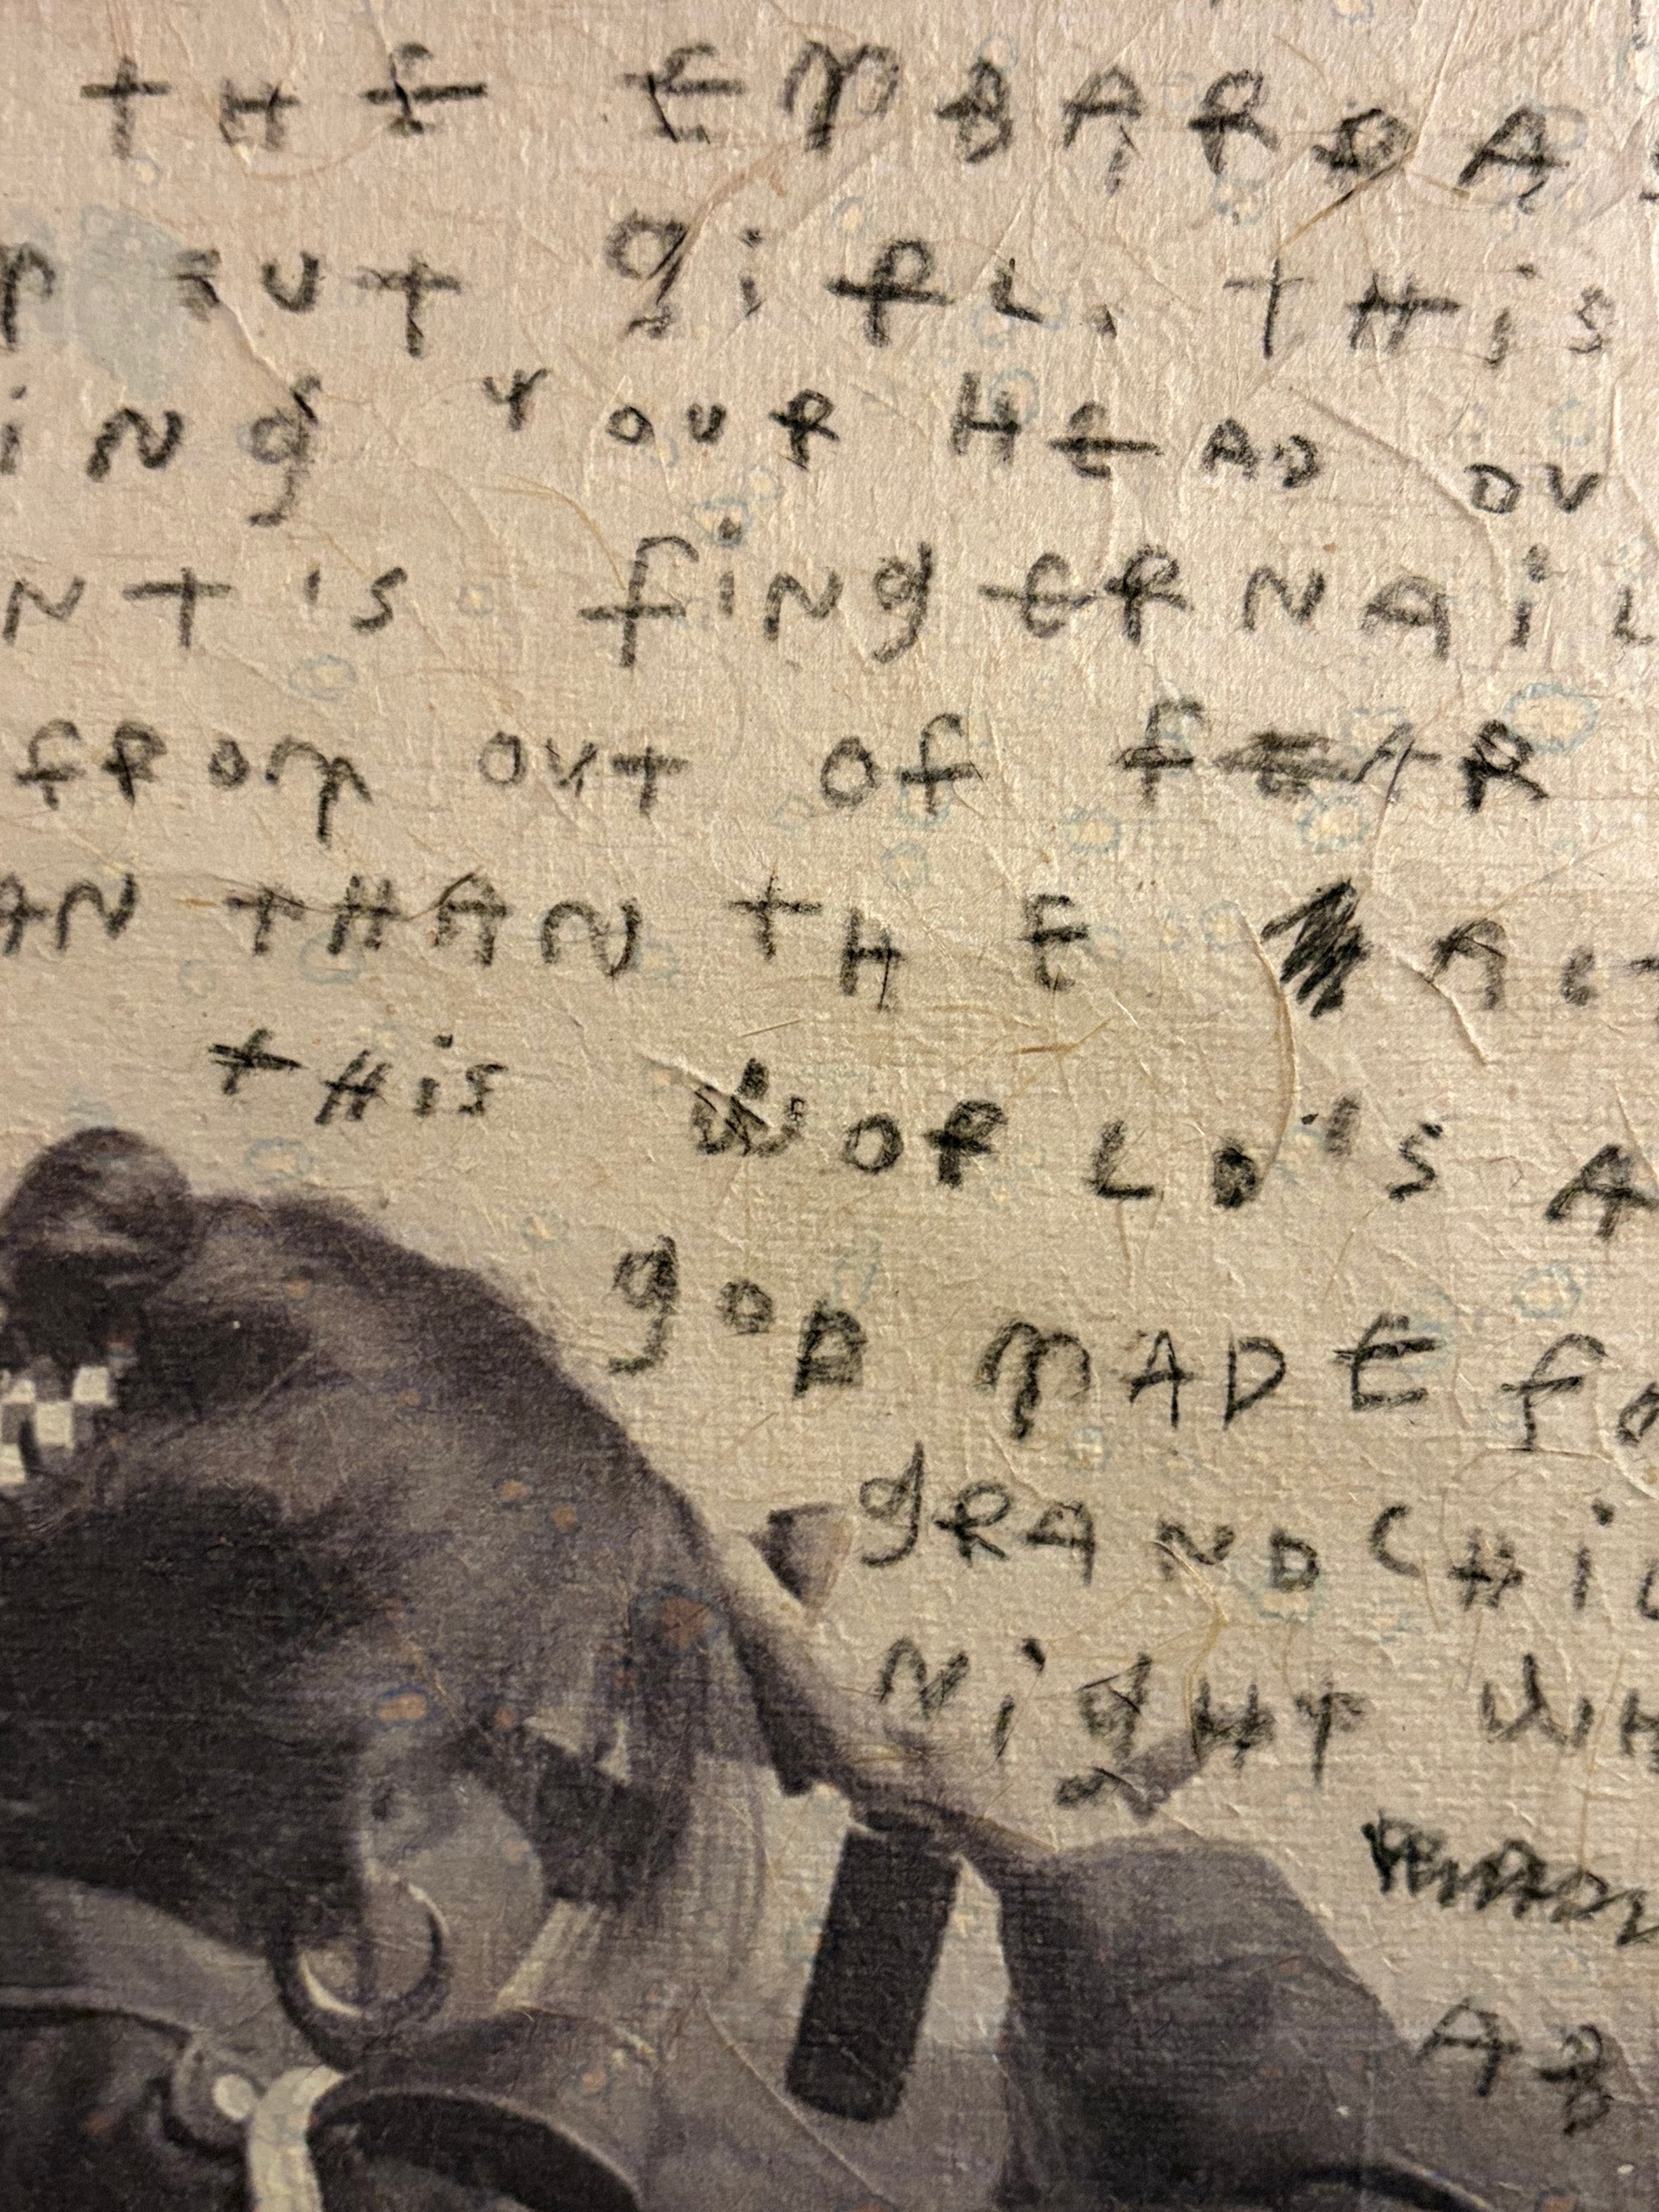 THE EMBARDA
OUT giRL. THiS
iNg YOUR HEAD OV
NT iS fiNgERNAiL
fROM OUT Of fEAR
AN THAN THE ALT
THiS WORLD'S A
gOD MADE fO
gRANDCHiL
NigHT WH
AB